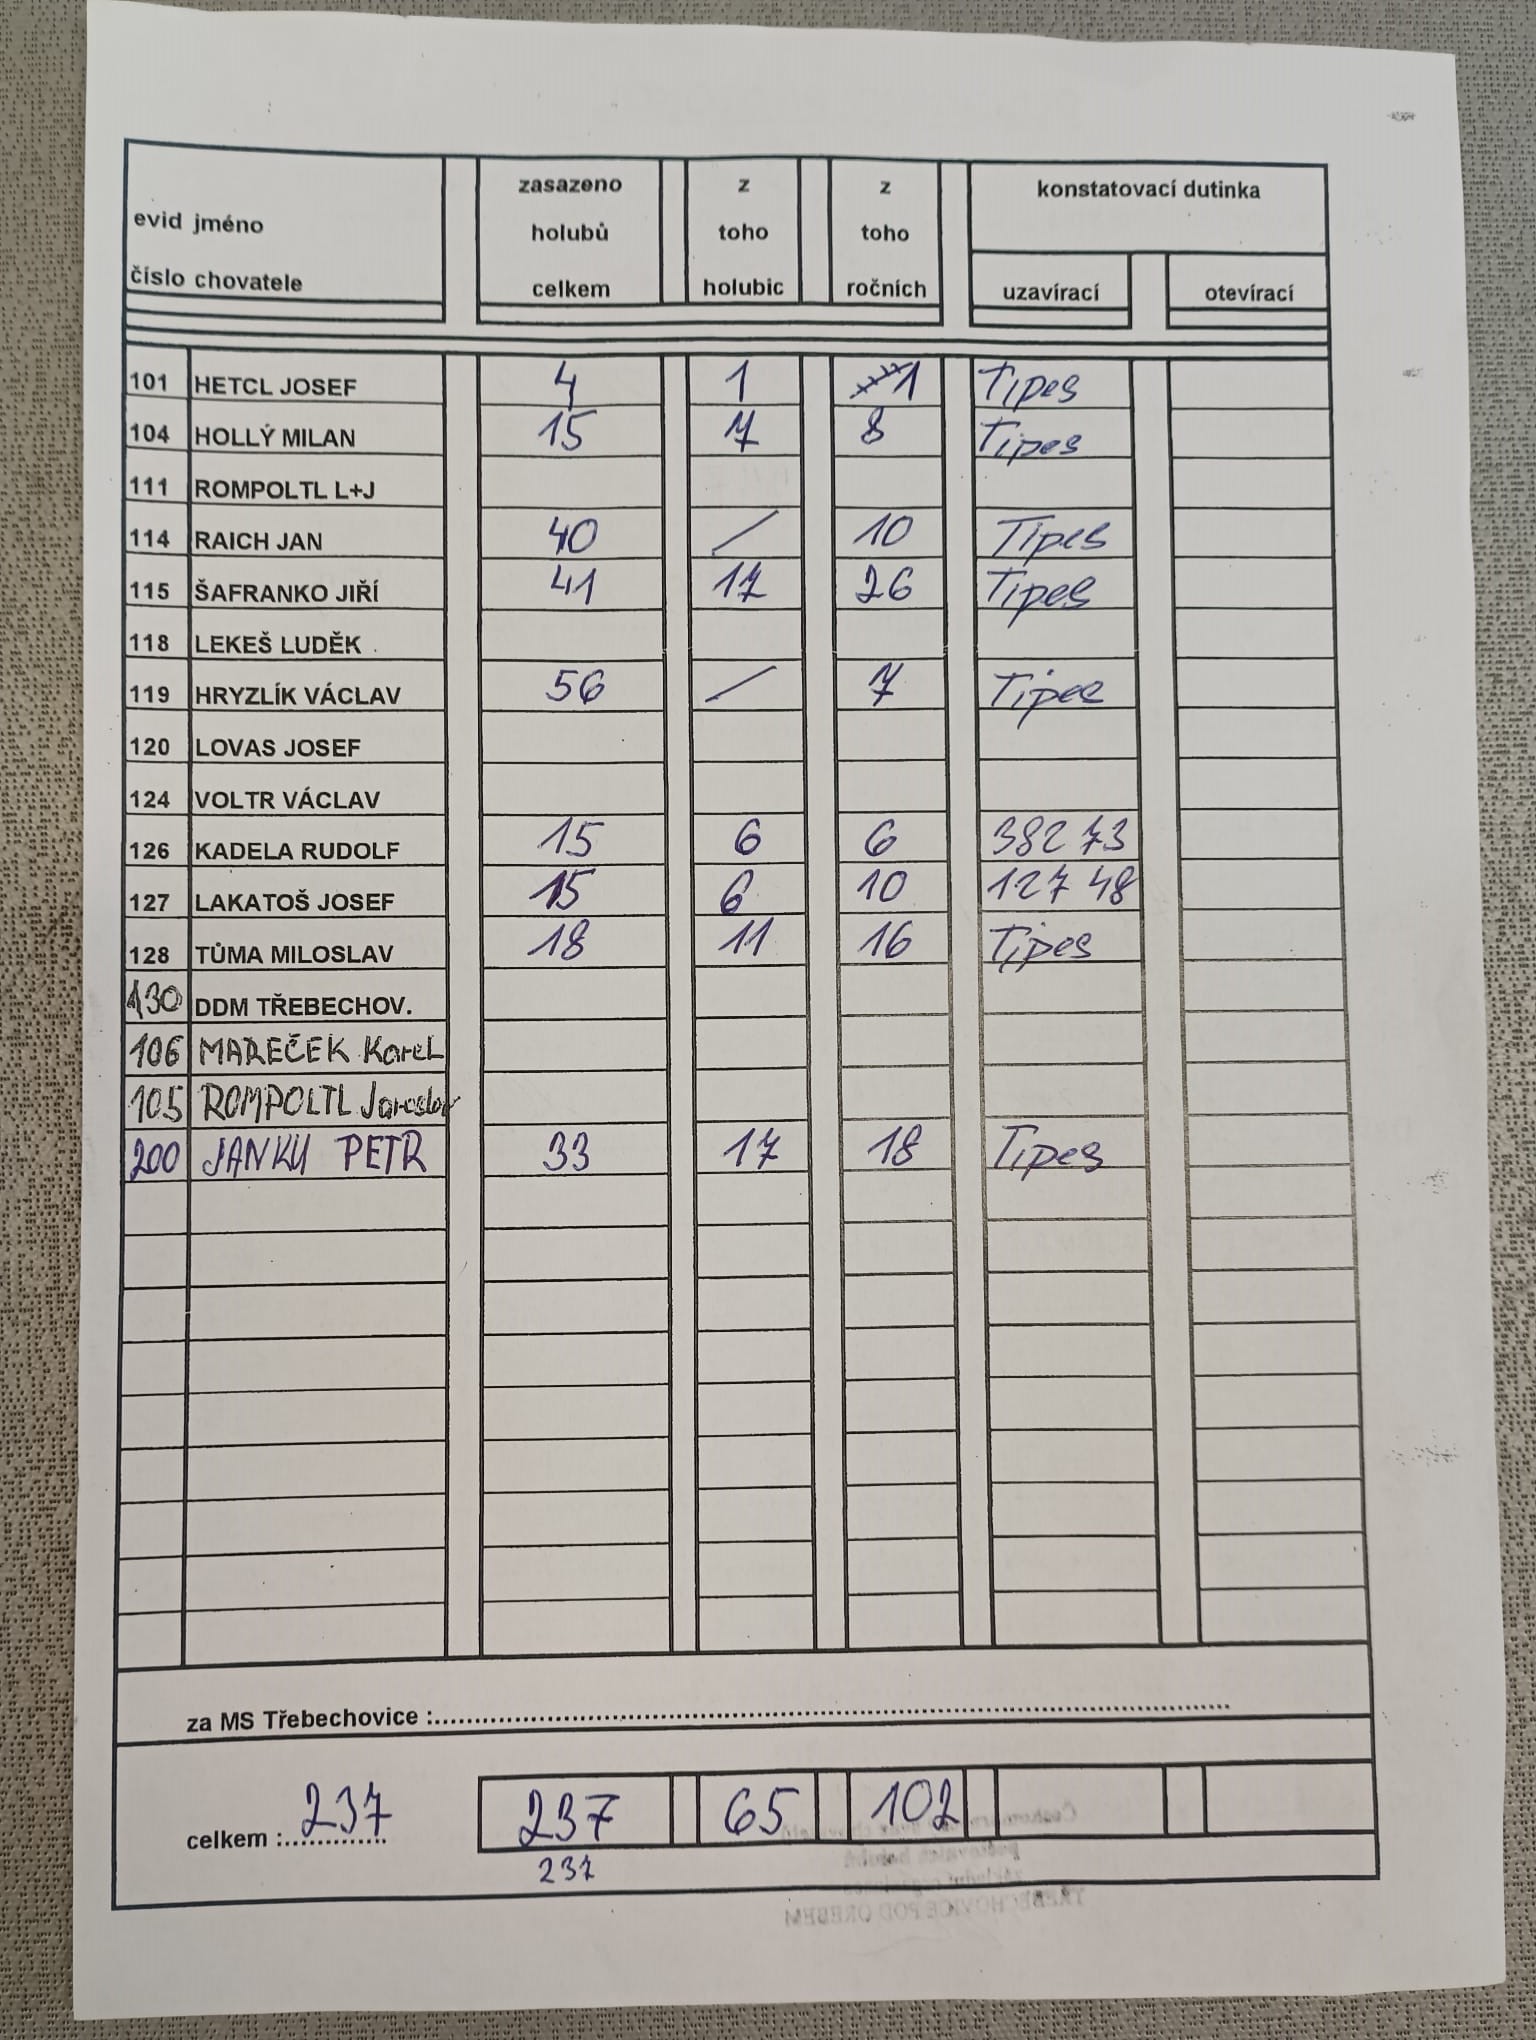 evid jméno
číslo chovatele
zasazeno
holubů
celkem
z
toho
holubic
z
toho
ročních
konstatovací dutinka
uzavírací
otevírací
101 HETCL JOSEF 4 1 1 Tipes
104 HOLLÝ MILAN 15 7 8 Tipes
111 ROMPOLTL L+J
114 RAICH JAN 40 / 10 Tipes
115 ŠAFRANKO JIŘÍ 41 17 26 Tipes
118 LEKEŠ LUDĚK
119 HRYZLÍK VÁCLAV 56 / 7 Tipes
120 LOVAS JOSEF
124 VOLTR VÁCLAV
126 KADELA RUDOLF 15 6 6 382 73
127 LAKATOŠ JOSEF 15 6 10 127 48
128 TŮMA MILOSLAV 18 11 16 Tipes
130 DDM TŘEBECHOV.
106 MAREČEK Karel
105 ROMPOLTL Jaroslav
200 JANKU PETR 33 17 18 Tipes
za MS Třebechovice :
celkem : 237 237 65 102
237
TŘEBECHOVICE POD OREBEM